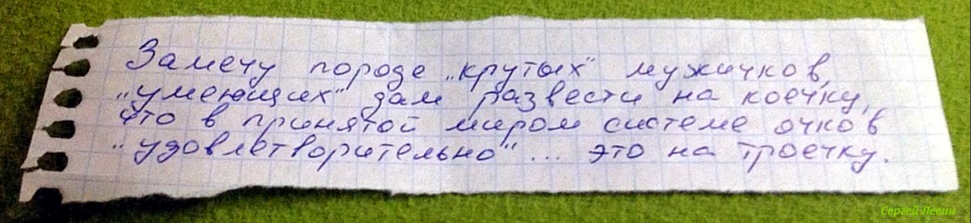 Замечу породе „крутых" мужичков,
„умеющих" дам развести на коечку,
что в принятой миром системе очков
„удовлетворительно"... это на троечку.
Сергей Левит